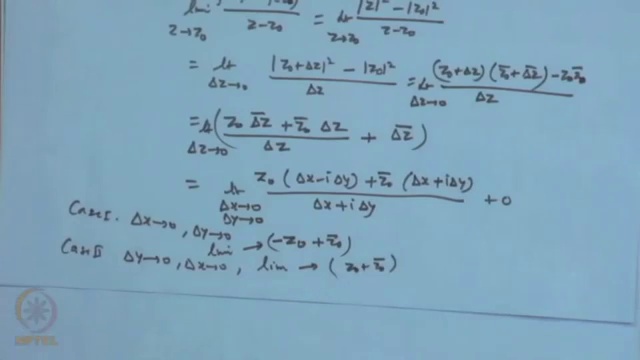 lim / z→z₀ ... / z-z₀ = lt / z→z₀ |z|² - |z₀|² / z-z₀
= lt / Δz→0 |z₀+Δz|² - |z₀|² / Δz = lt / Δz→0 (z₀+Δz)(z̄₀+Δ̄z̄) - z₀z̄₀ / Δz
= lt / Δz→0 ( z₀ Δ̄z̄ + z̄₀ Δz / Δz + Δ̄z̄ )
= lt / Δx→0 Δy→0 z₀(Δx-iΔy) + z̄₀(Δx+iΔy) / Δx+iΔy + 0
Case I. Δx→0, Δy→0 lim → (-z₀ + z̄₀)
Case II Δy→0, Δx→0, lim → (z₀ + z̄₀)
NPTEL